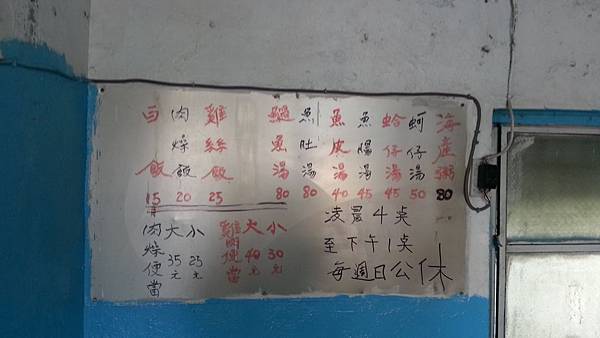 海產粥 80
蚵仔湯 50
蛤仔湯 45
魚腸湯 45
魚皮湯 40
魚肚湯 80
魚湯 80
雞絲飯 25
肉燥飯 20
白飯 15
凌晨4奌
至下午1奌
每週日公休
雞肉便當 大40元 小30元
肉燥便當 大35元 小25元